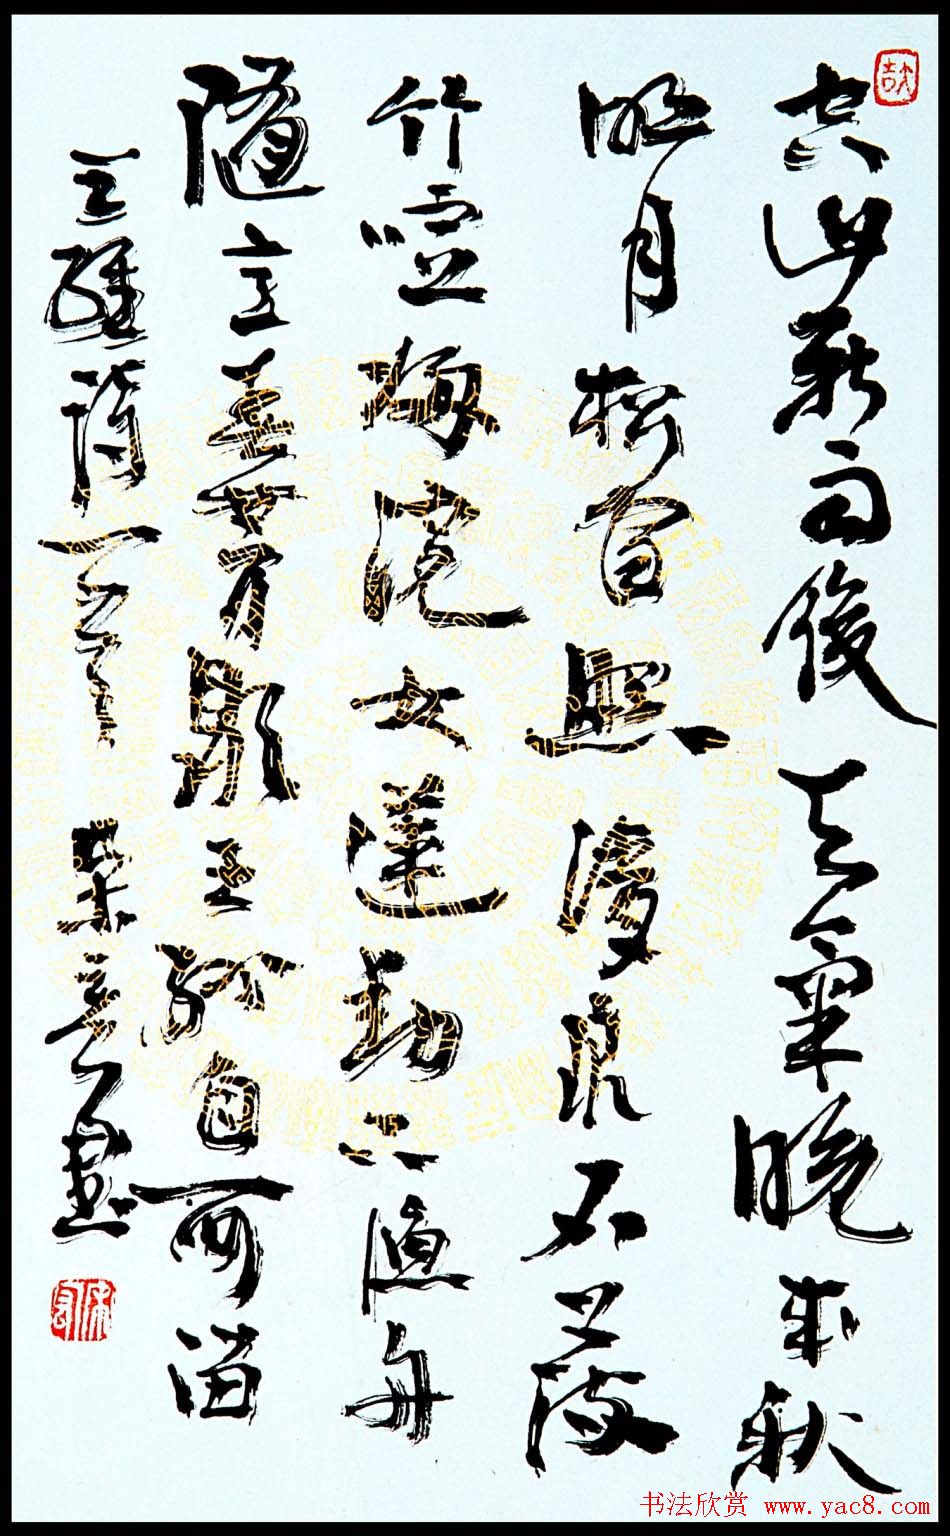 空山新雨後天氣晚来秋
明月松間照清泉石上流
竹喧歸浣女蓮動下漁舟
隨意春芳歇王孫自可留
王維詩一首
书法欣赏 www.yac8.com